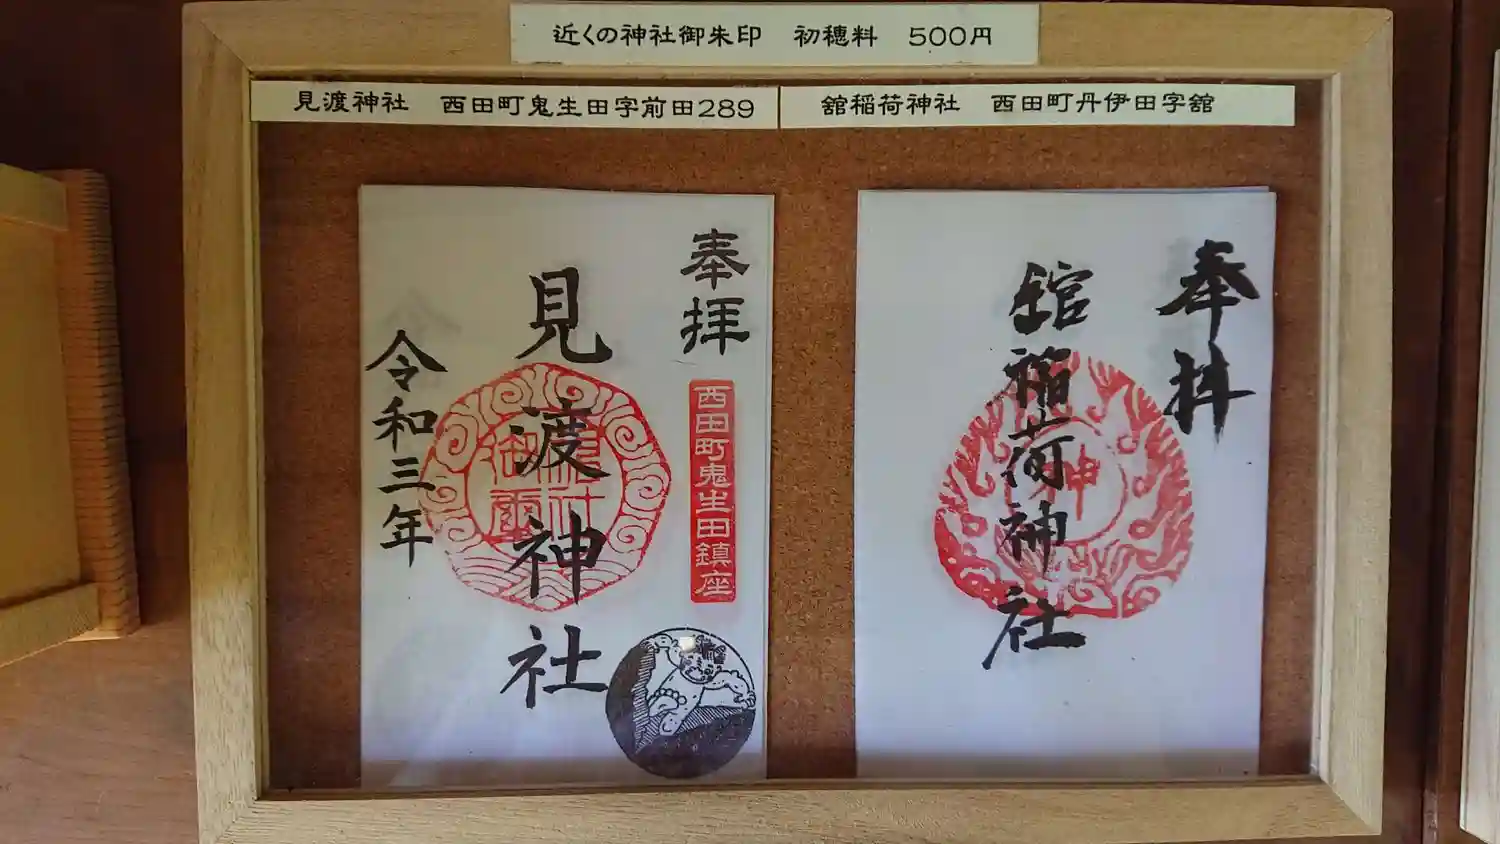 近くの神社御朱印　初穂料　500円
見渡神社　西田町鬼生田字前田289
舘稲荷神社　西田町丹伊田字舘
奉拝
西田町鬼生田鎮座
見渡神社
令和三年
奉拝
舘稲荷神社
神